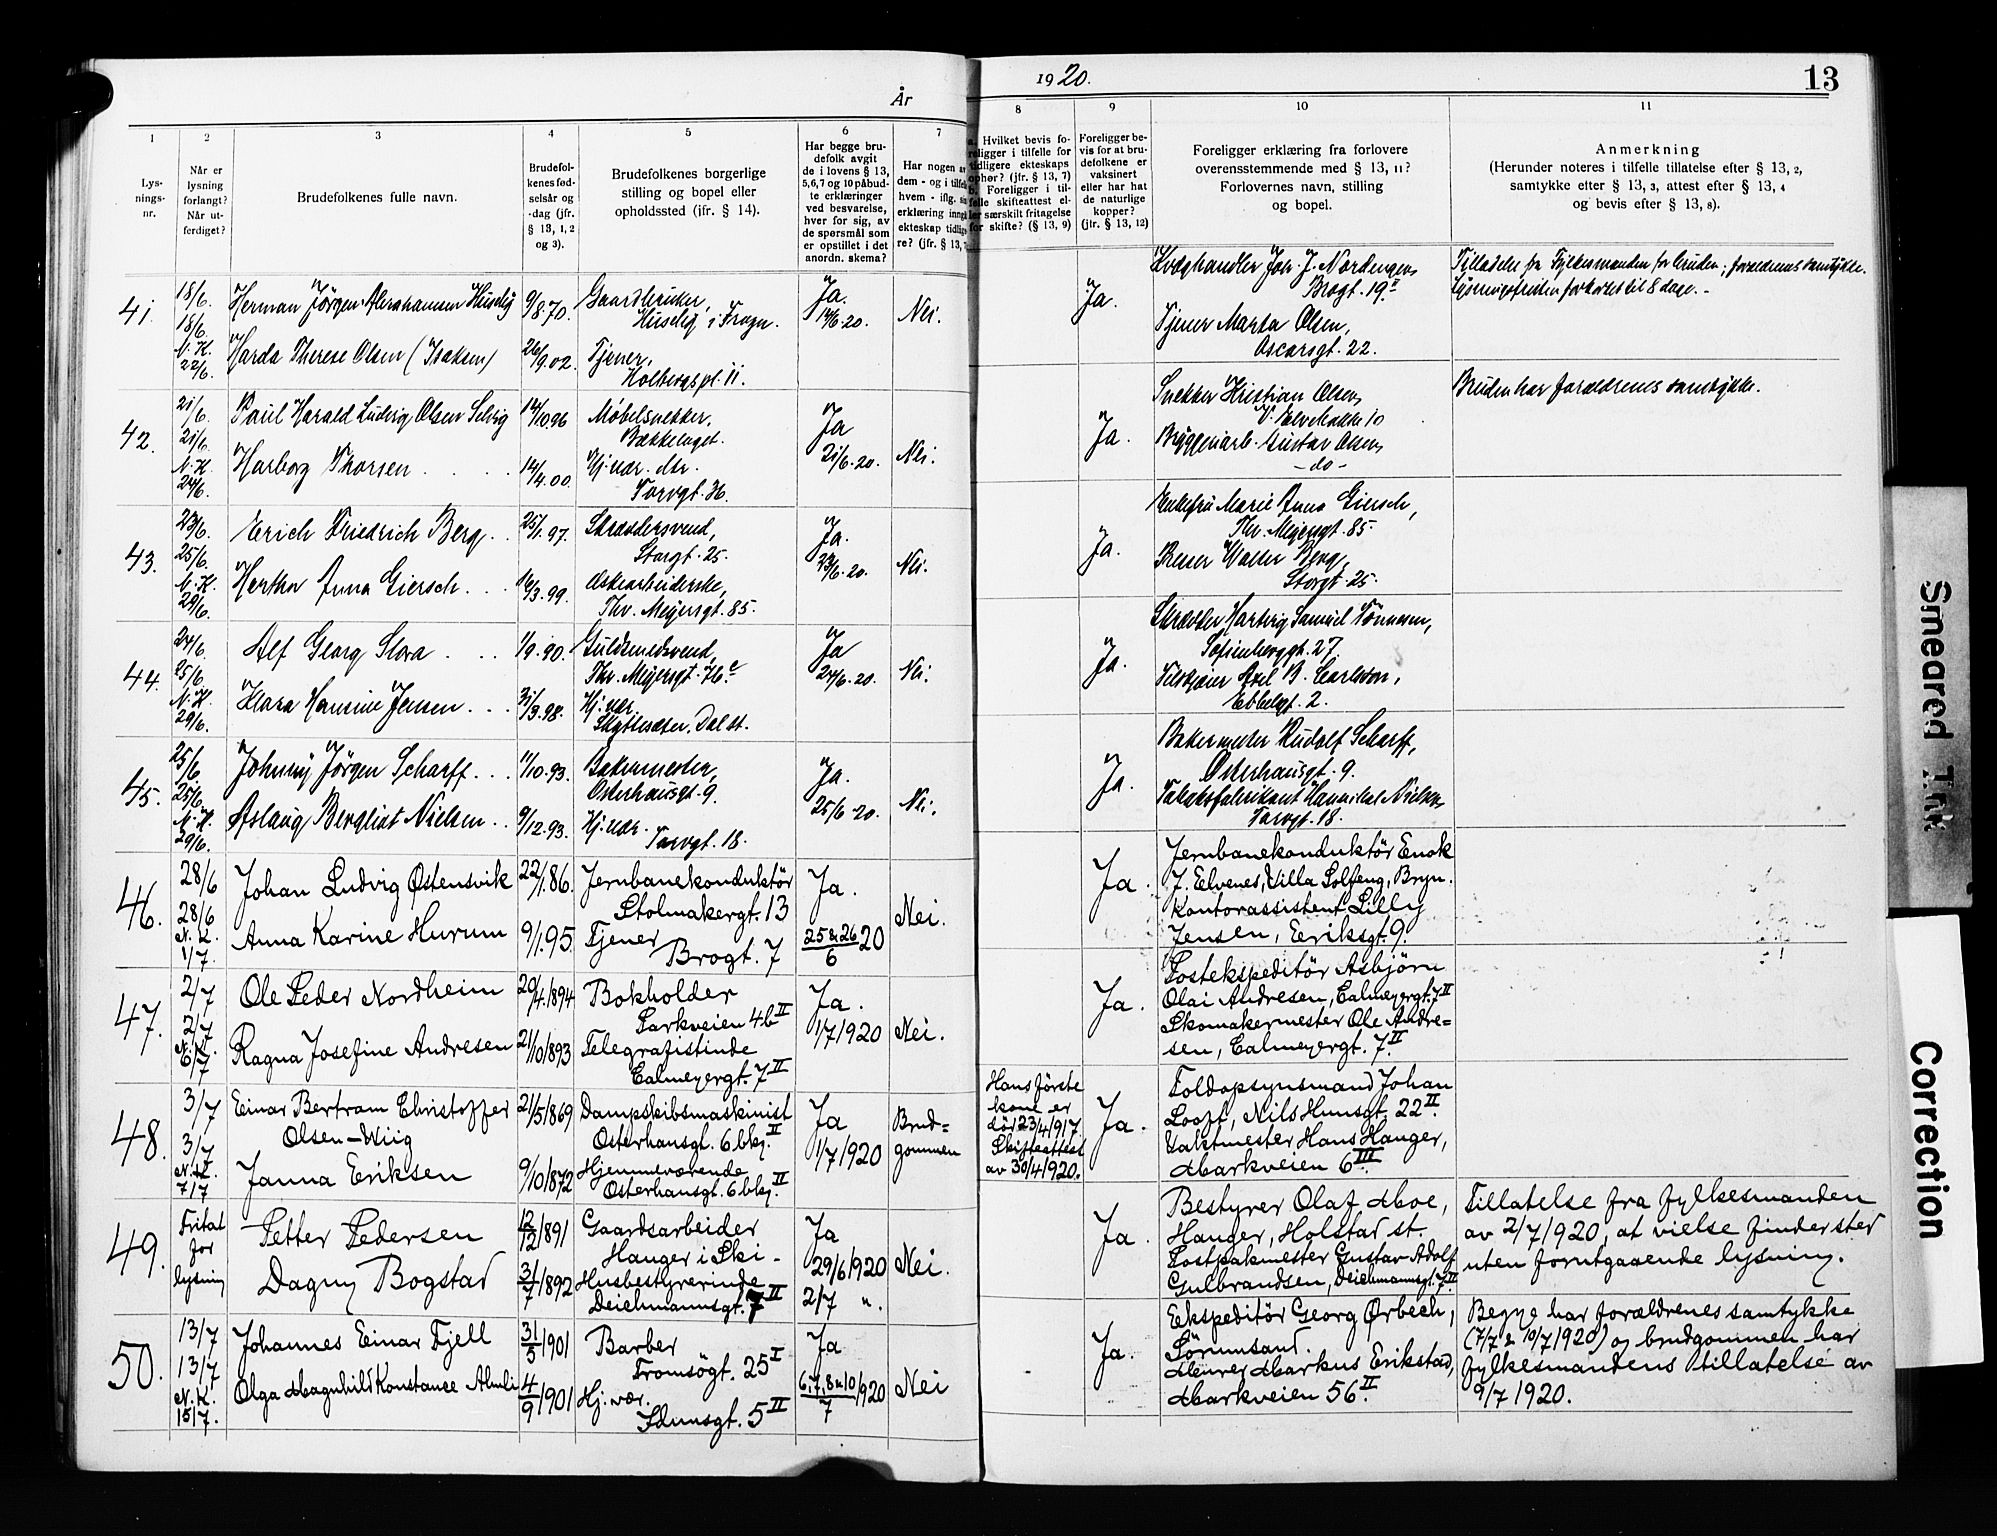 År 1920.
13
1
2
3
4
5
6
7
8
9
10
11
Lys-
nings-
nr.
Når er
lysning
forlangt?
Når ut-
ferdiget?
Brudefolkenes fulle navn.
Brudefol-
kenes fød-
selsår og
-dag (jfr.
§ 13, 1, 2
og 3).
Brudefolkenes borgerlige
stilling og bopel eller
opholdssted (jfr. § 14).
Har begge bru-
defolk avgit
de i lovens § 13,
5,6,7 og 10 påbud-
te erklæringer
ved besvarelse,
hver for sig, av
de spørsmål som
er opstillet i det
anordn. skema?
Har nogen av
dem - og i tilfelle
hvem - iflg. sin
erklæring inngå
ekteskap tidlige
re? (jfr. § 13, 7
a. Hvilket bevis fo-
religger i tilfelle for
tidligere ekteskaps
ophør? (jfr. § 13, 7)
b. Foreligger i til-
felle skifteattest el-
ler særskilt fritagelse
for skifte? (§ 13, 9)
Foreligger be-
vis for at bru-
defolkene er
vaksinert
eller har hat
de naturlige
kopper?
(jfr. § 13, 12)
Foreligger erklæring fra forlovere
overensstemmende med § 13, 11?
Forlovernes navn, stilling
og bopel.
Anmerkning
(Herunder noteres i tilfelle tillatelse efter § 13, 2,
samtykke efter § 13, 3, attest efter § 13, 4
og bevis efter § 13, 8).
41.
18/6.
18/6.
N.K.
22/6.
Herman Jörgen Abrahamsen Huseby
Harda Therese Olsen (Isaksen)
9/8.70.
26/9.02.
Gaardbruker,
Huseby i Frogn.
Tjener,
Holbergspl. 11.
Ja.
14/6.20.
Nei.
Ja.
Joh. J. Nordengen,
Brogt. 19 II
Tjener Marta Olsen,
Oscarsgt. 22.
Tilladelse fra Fylkesmanden for bruden; forældrenes samtykke.
Lysningsfristen forkortet til 8 dage. -
42.
21/6.
21/6.
N.K.
24/6.
Paul Harald Ludvig Olsen Selvig
Harborg Thorsen
14/10.96
14/4.00.
Møbelsnekker,
Bækkelaget.
Hj. vær. dtr.
Torvgt. 36.
Ja
21/6.20.
Nei.
Ja.
Snekker Kristian Olsen,
V. Elvebakke 10
Bryggeriarb. Gustav Olsen,
- do -
Bruden har forældrenes samtykke.
43.
23/6.
25/6.
N.K.
29/6.
Erich Friedrich Berg
Hertha Anna Giersch
25/1.97.
16/3.99.
Skræddersvend,
Storgt. 25.
Æskearbeiderske,
Thv. Meyersgt. 85.
Ja.
23/6.20.
Nei.
Ja.
Enkefru Marie Anna Giersch,
Thv. Meyersgt. 85.
Walter Berg,
Storgt. 25.
44.
24/6.
25/6.
N.K.
29/6.
Alf Georg Slora
Klara Hansine Jensen
1/9.90.
31/3.98.
Guldsmedsvend,
Thv. Meyersgt. 76 c
Hj. vær.
Skyttesæter, Dal st.
Ja
24/6.20.
Nei.
Ja.
Skrædder Hartvig Samuel Tönnesen,
Sofienberggt. 27.
Axel B. Carlsson,
Ebbelsgt. 2.
45.
25/6.
25/6.
N.K.
29/6.
Johnny Jörgen Scharff
Aslaug Bergliot Nielsen
1/10.93.
9/12.93.
Bakermester,
Osterhausgt. 9.
Hj. vær.
Torvgt. 18.
Ja.
25/6.20.
Nei.
Ja.
Bakermester Rudolf Scharff,
Osterhausgt. 9.
Tobaksfabrikant Hannibal Nielsen,
Torvgt. 18.
46.
28/6
28/6
N.K.
1/7.
Johan Ludvig Østensvik
Anna Karine Hurum
22/1.86.
9/1.95.
Jernbanekonduktör
Stolmakergt. 13
Tjener
Brogt. 7
Ja.
25 & 26/6 20
Nei.
Ja.
Jernbanekonduktör Enok
J. Elvenes, Villa Solfeng, Bryn.
Kontorassistent Lilly
Jensen, Eeriksgt. 9.
47.
2/7
2/7
N.K.
6/7
Ole Peder Nordheim
Ragna Josefine Andresen
20/4.1894
21/10/893
Bokholder
Parkveien 4b II
Telegrafistinde
Calmeyergt. 7 II
Ja.
1/7 1920
Nei.
Ja.
Postekspeditör Asbjörn
Olai Andresen, Calmeyergt. 7 II
Skomakermester Ole Andre=
sen, Calmeyergt. 7 II
48.
3/7
3/7
N.K.
7/7
Einar Bertram Christoffer
Olsen-Wiig
Janna Eriksen
21/5/869
9/10/872
Dampskibsmaskinist
Osterhausgt. 6 bkg. II
Hjemmeværende
Osterhausgt. 6 bkg. II
Ja
1/7 1920
Brud=
gommen
Hans förste
kone er
död 23/4/917
Skifteattest
av 30/4/1920.
Ja.
Toldopsynsmand Johan
Looft, Nils Huusgt. 22 II.
Vaktmester Hans Hauger,
Markveien 6 III.
49.
Fritat
for
lysning
Petter Pedersen
Dagny Bogstad
12/12/891
31/7/892
Gaardsarbeider
Hauger i Ski -
Husbestyrerinde
Deichmannsgt. 7 II
Ja
29/6 1920
2/7 ".
Nei.
Ja.
Bestyrer Olaf Moe,
Hauger, Holstad st.
Postpakmester Gustav Adolf
Gulbrandsen, Deichmannsgt. 7 II
Tillatelse fra fylkesmanden
av 2/7 1920, at vielse finder sted
uten forutgaaende lysning.
50.
13/7
13/7
N.K.
15/7.
Johannes Einar Fjell
Olga Magnhild Konstanse Almli
31/5/1901
4/9/1901
Barber
Tromsögt. 25 I
Hj. vær.
Idunsgt. 5 II
Ja
6, 7, 8 & 10/7 1920
Nei
-
Ja.
Ekspeditör Georg Ørbech,
Sörumsand.
Murer Markus Erikstad,
Markveien 56 II.
Begge har forældrenes samtykke
(7/7 & 10/7 1920) og brudgommen har
fylkesmandens tillatelse av
9/7 1920.
Smeared Ink
Correction